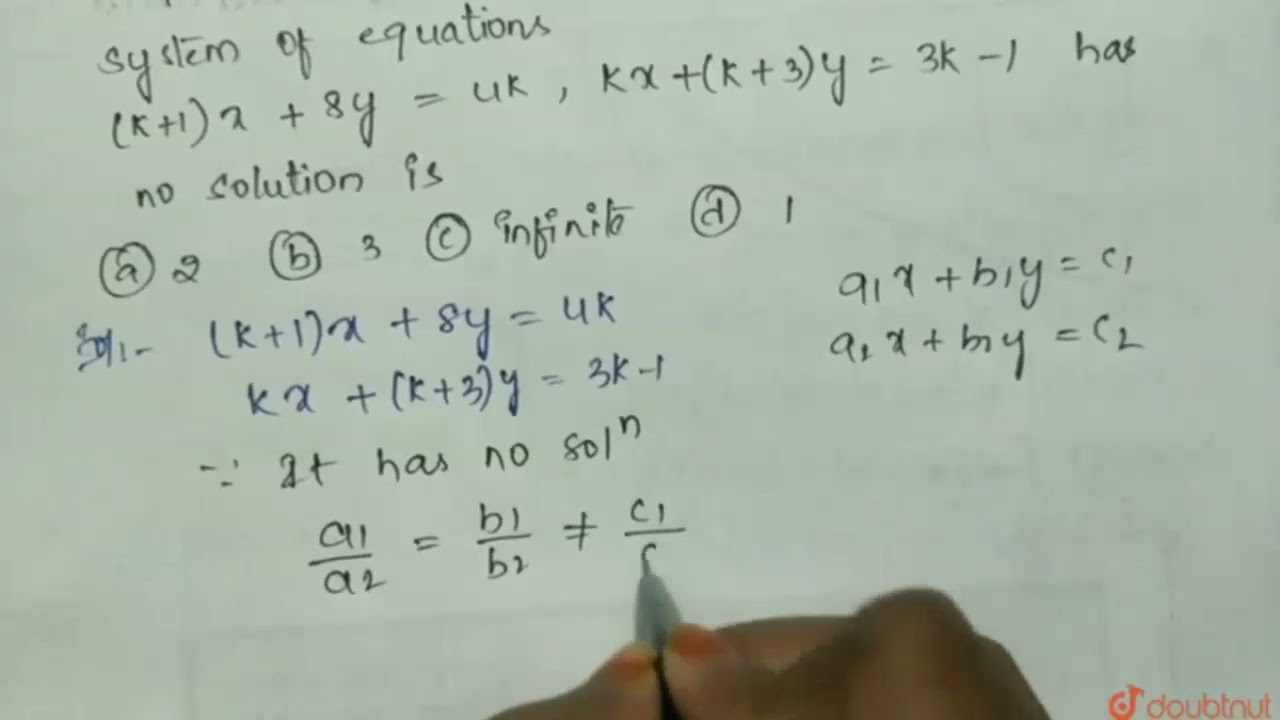 system of equations
(k+1)x + 8y = 4k , kx+(k+3)y = 3k-1 has
no solution is
(a) 2 (b) 3 (c) infinite (d) 1
a1x + b1y = c1
a2x + b2y = c2
Sol:- (k+1)x + 8y = 4k
kx + (k+3)y = 3k-1
∵ It has no solⁿ
a1/a2 = b1/b2 ≠ c1/
doubtnut